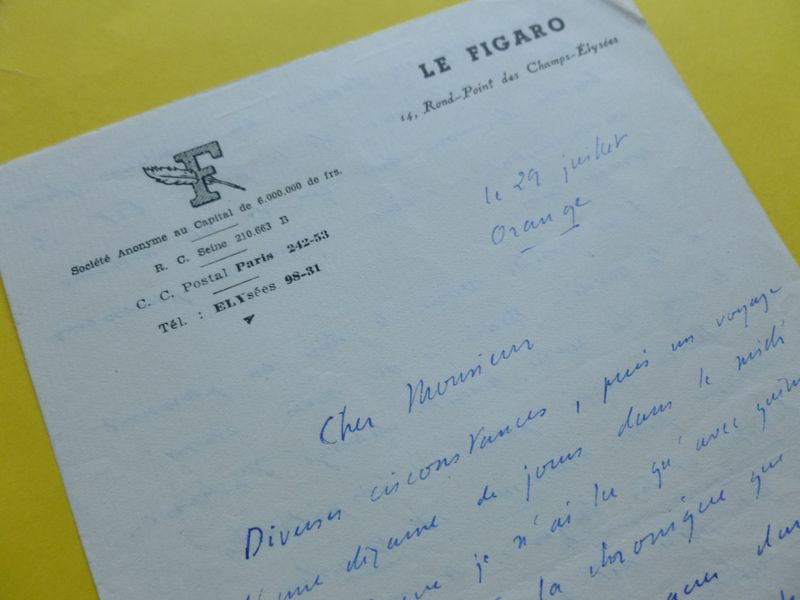 LE FIGARO
14, Rond-Point des Champs-Élysées
F
Société Anonyme au Capital de 6.000.000 de frs.
R. C. Seine 210.663 B
C. C. Postal Paris 242-53
Tél. : ELYsées 98-31
le 29 juillet
Orange
Cher Monsieur
Diverses circonstances, puis un voyage
d'une dizaine de jours dans le midi
que je n'ai lu qu'avec
la chronique que